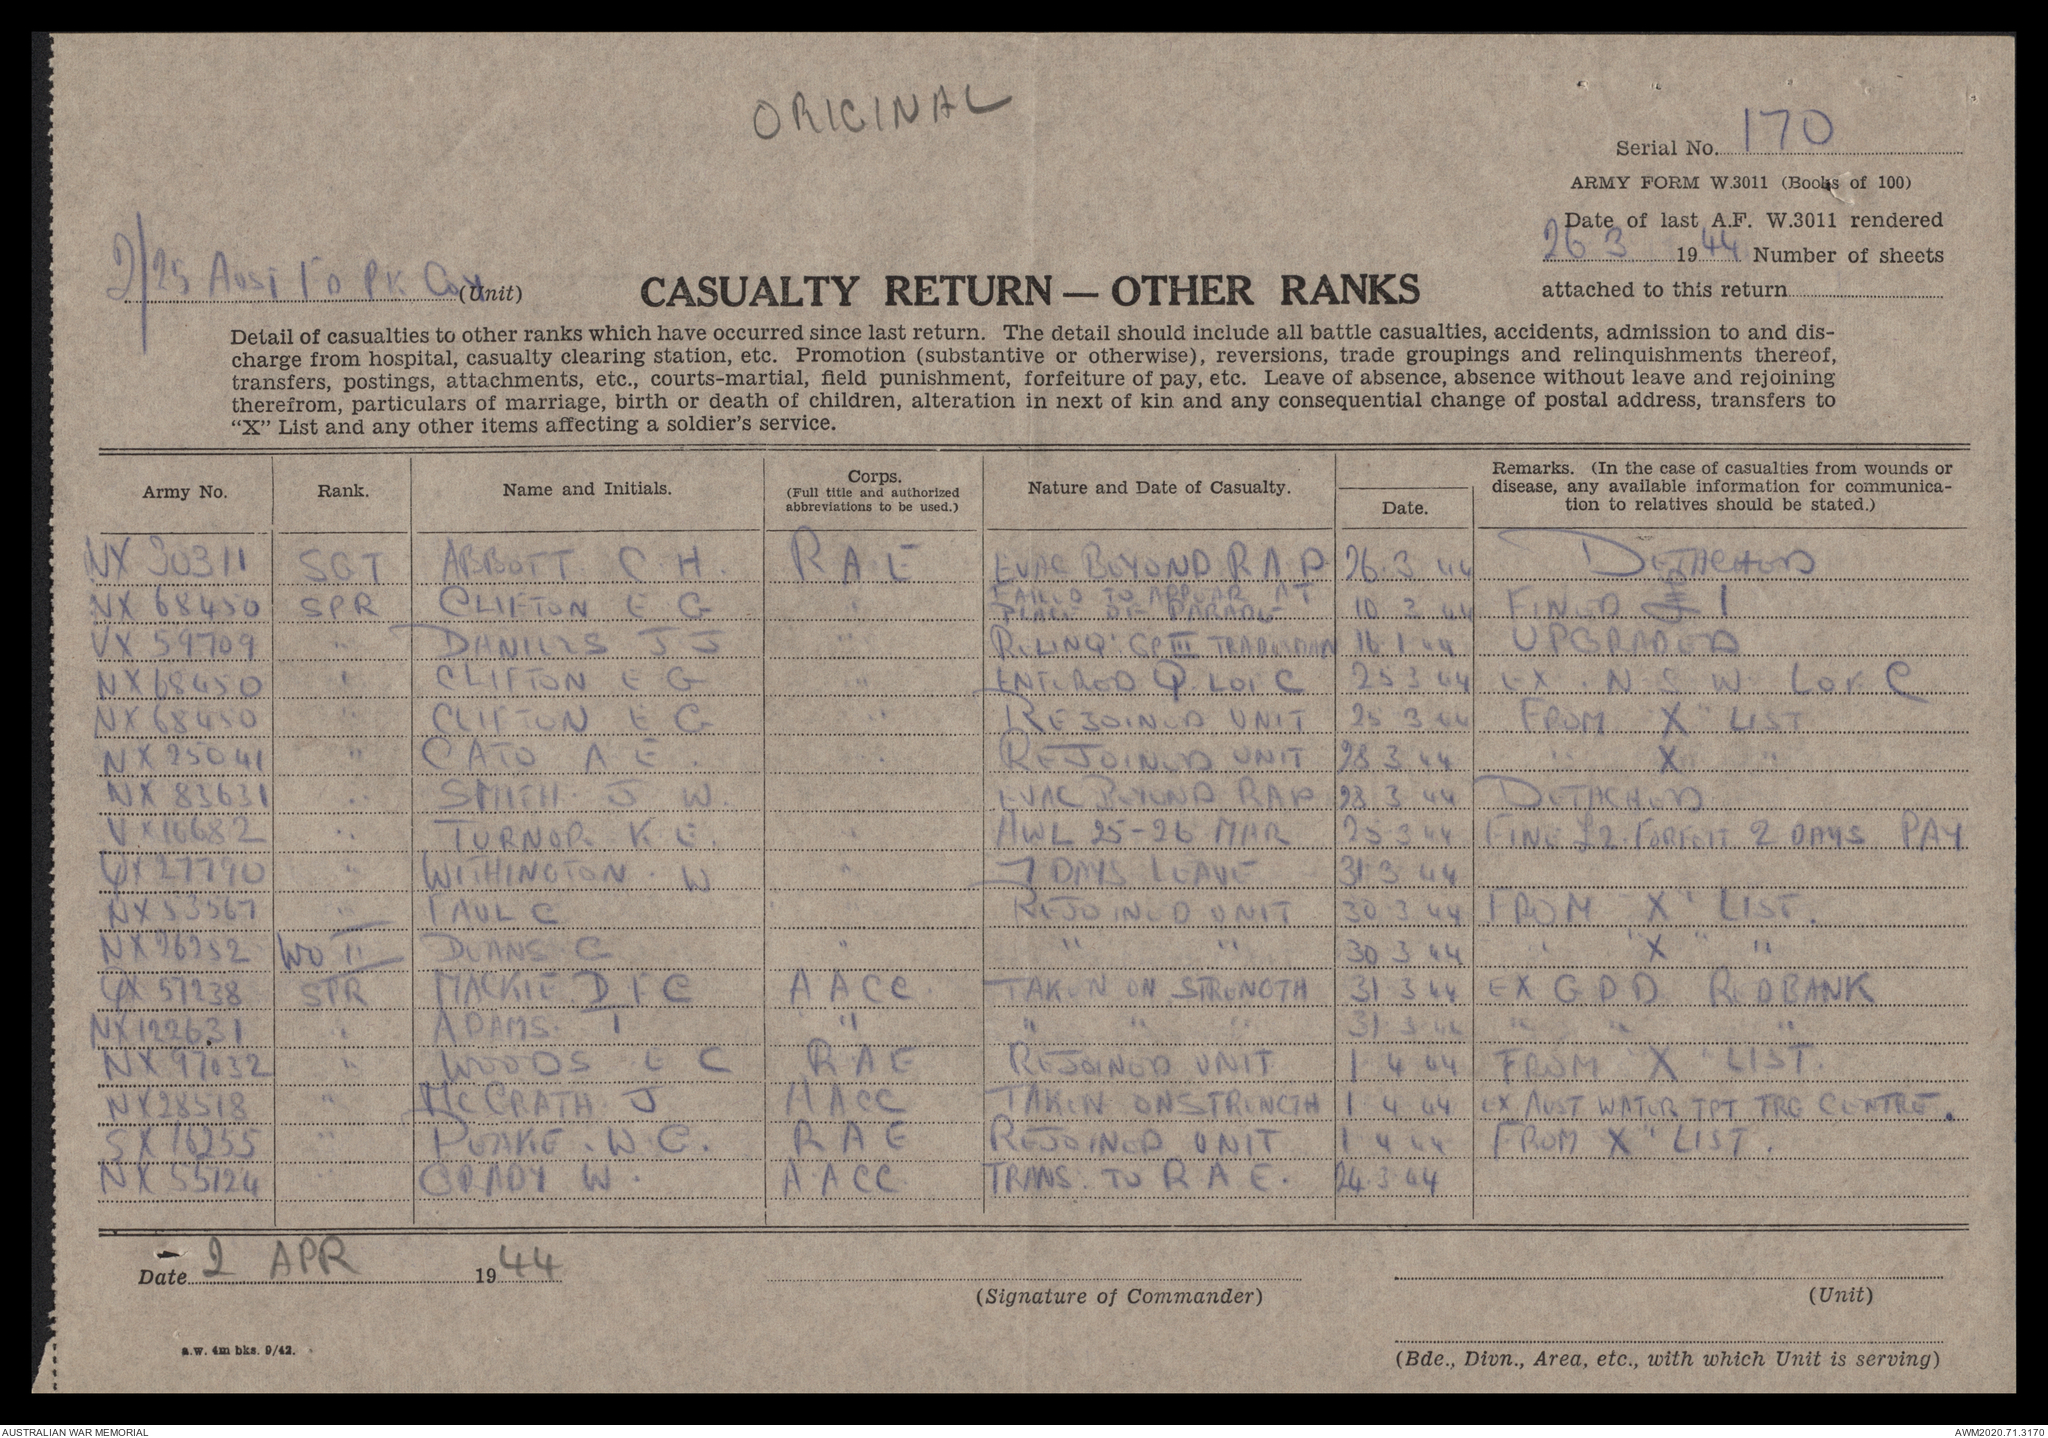 ORIGINAL
Serial No. 170
ARMY FORM W.3011 (Books of 100)
Date of last A.F. W.3011 rendered
26 3 1944 Number of sheets
attached to this return
2/25 Aust Fd Pk Coy (Unit)
CASUALTY RETURN — OTHER RANKS
Detail of casualties to other ranks which have occurred since last return. The detail should include all battle casualties, accidents, admission to and dis-
charge from hospital, casualty clearing station, etc. Promotion (substantive or otherwise), reversions, trade groupings and relinquishments thereof,
transfers, postings, attachments, etc., courts-martial, field punishment, forfeiture of pay, etc. Leave of absence, absence without leave and rejoining
therefrom, particulars of marriage, birth or death of children, alteration in next of kin and any consequential change of postal address, transfers to
"X" List and any other items affecting a soldier's service.
Army No. Rank. Name and Initials. Corps. (Full title and authorized abbreviations to be used.) Nature and Date of Casualty. Date. Remarks. (In the case of casualties from wounds or disease, any available information for communica-tion to relatives should be stated.)
NX 30311 SGT ABBOTT C H. R A E EVAC BEYOND R A P 26.3 44 DETACHED
NX 68450 SPR CLIFTON E G " FAILED TO APPEAR AT PLACE OF PARADE 10 3 44 FINED £1
VX 59709 " DANIELS J J " RELINQ' GP III TRADESMAN 16 1 44 UPGRADED
NX 68450 " CLIFTON E G " ENTERED Q. L of C 25 3 44 EX. N S W L of C
NX 68450 " CLIFTON E G " REJOINED UNIT 25 3 44 FROM "X" LIST
NX 25041 " CATO A E. " REJOINED UNIT 28 3 44 " X "
NX 83631 " SMITH J W. EVAC BEYOND RAP 28 3 44 DETACHED
VX16682 " TURNOR K E. " AWL 25-26 MAR 25 3 44 FINE £2. FORFEIT 2 DAYS PAY
QX 27790 " WITHINGTON. W " 7 DAYS LEAVE 31 3 44
NX 53567 " PAUL C REJOINED UNIT 30 3 44 FROM "X" LIST.
NX 26252 WO II C " " " 30 3 44 " "X" "
QX 57238 SPR MACKIE D F C A A C C. TAKEN ON STRENGTH 31 3 44 EX G D D REDBANK
NX122631 " ADAMS. T " " " " 31 3 44 " " "
NX 97032 " WOODS E C R A E REJOINED UNIT 1 4 44 FROM "X" LIST.
NX28518 " McGRATH J A A C C TAKEN ON STRENGTH 1 4 44 EX AUST WATER TPT TRG CENTRE.
SX 16255 " PEAKE. W. G. R A E REJOINED UNIT 1 4 44 FROM "X" LIST.
NX 55124 GRADY W. A A C C TRANS. TO R A E. 24.3.44
Date 2 APR 1944
(Signature of Commander)
(Unit)
a.w. 4m bks. 9/42.
(Bde., Divn., Area, etc., with which Unit is serving)
AUSTRALIAN WAR MEMORIAL
AWM2020.71.3170